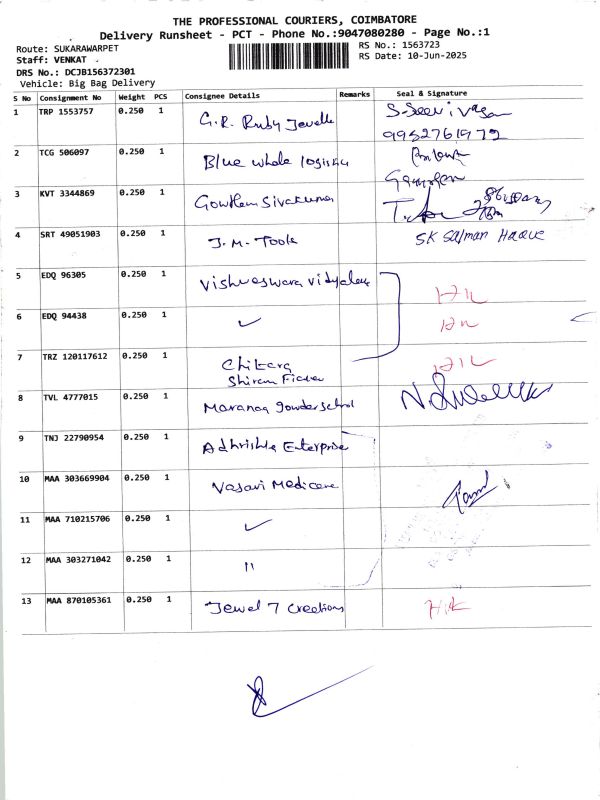 THE PROFESSIONAL COURIERS, COIMBATORE
Delivery Runsheet - PCT - Phone No.:9047080280 - Page No.:1
Route: SUKARAWARPET
RS No.: 1563723
Staff: VENKAT
RS Date: 10-Jun-2025
DRS No.: DCJB156372301
Vehicle: Big Bag Delivery
S No Consignment No Weight PCS Consignee Details Remarks Seal & Signature
1 TRP 1553757 0.250 1 G.R. Ruby Jewells
9952761972
2 TCG 506097 0.250 1 Blue whale
3 KVT 3344869 0.250 1 Gowtham Sivakumar
4 SRT 49051903 0.250 1 J.M. Tools SK Salman Haque
5 EDQ 96305 0.250 1 Vishweswara
6 EDQ 94438 0.250 1 ✓
7 TRZ 120117612 0.250 1
8 TVL 4777015 0.250 1
9 TNJ 22790954 0.250 1 Enterprise
10 MAA 303669904 0.250 1 Vasavi Medicare
11 MAA 710215706 0.250 1 ✓
12 MAA 303271042 0.250 1 "
13 MAA 870105361 0.250 1 Jewel 7 Creations